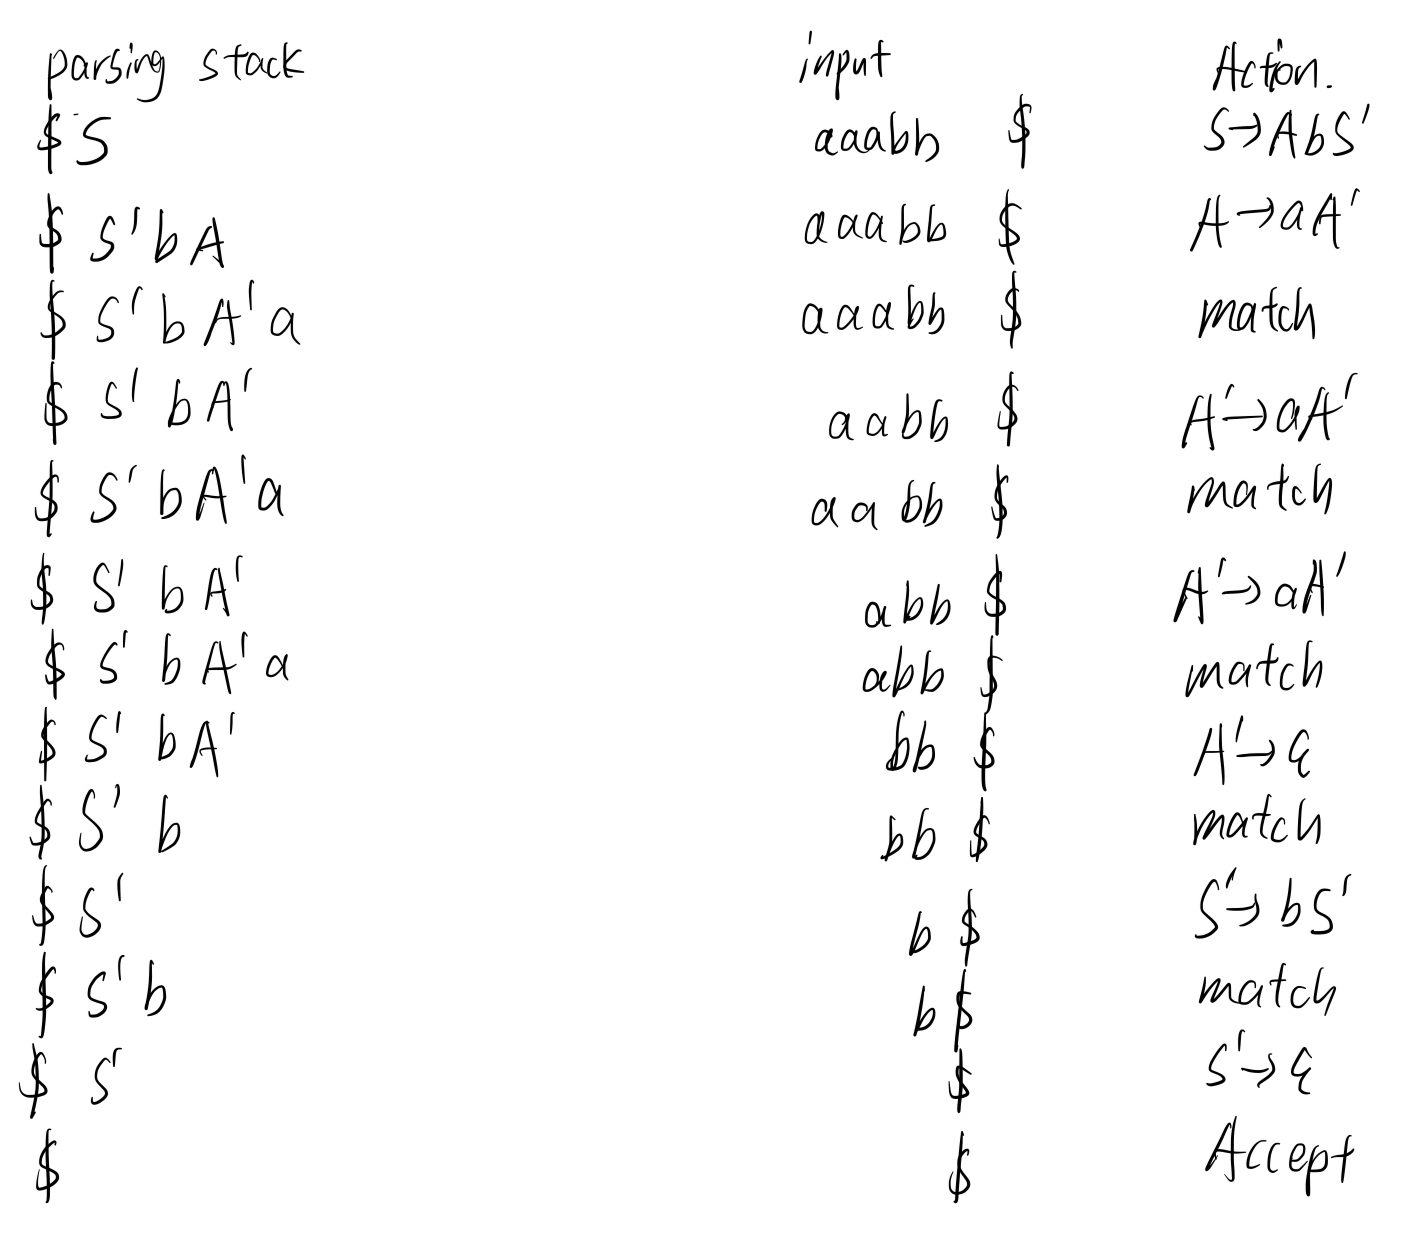 parsing stack input Action.
$ S aaabb $ S→AbS'
$ S'bA aaabb $ A→aA'
$ S'bA'a aaabb $ match
$ S'bA' aabb $ A'→aA'
$ S'bA'a aabb $ match
$ S'bA' abb $ A'→aA'
$ S'bA'a abb $ match
$ S'bA' bb $ A'→ε
$ S'b bb $ match
$ S' b $ S'→bS'
$ S'b b $ match
$ S' $ S'→ε
$ $ Accept